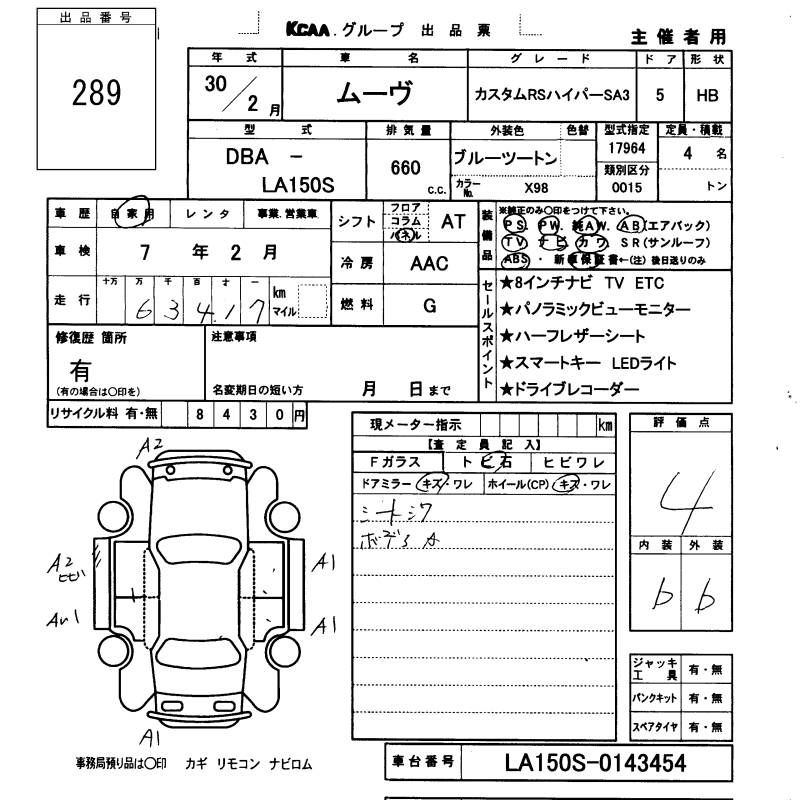 出品番号
289
KCAA.グループ 出品票
主催者用
年式 車名 グレード ドア 形状
30/2月 ムーヴ カスタムRSハイパーSA3 5 HB
型式 排気量 外装色 色替 型式指定 定員・積載
DBA - LA150S
660 c.c.
ブルーツートン
カラーNo. X98
17964
類別区分
0015
4 名
トン
車歴 自家用 レンタ 事業.営業車
車検 7 年 2 月
走行 十万 万 千 百 十 一
6 3 4 1 7 km マイル
シフト フロア コラム パネル AT
冷房 AAC
燃料 G
装備品
※純正のみ〇印をつけて下さい。
PS. PW. 純AW. AB(エアバック)
TV ナビ カワ SR(サンルーフ)
ABS・ 新車保証書←(注)後日送りのみ
セールスポイント
★8インチナビ TV ETC
★パノラミックビューモニター
★ハーフレザーシート
★スマートキー LEDライト
★ドライブレコーダー
修復歴 箇所
有
(有の場合は〇印を)
注意事項
名変期日の短い方 月 日まで
リサイクル料 有・無 8430円
現メーター指示 km
【査定員記入】
Fガラス トビ石 ヒビワレ
ドアミラー キズ・ワレ ホイール(CP) キズ・ワレ
シートシワ
評価点
4
内装 外装
b b
A2
A2
A1
A1
A1
ジャッキ工具 有・無
パンクキット 有・無
スペアタイヤ 有・無
事務局預り品は〇印 カギ リモコン ナビロム
車台番号 LA150S-0143454